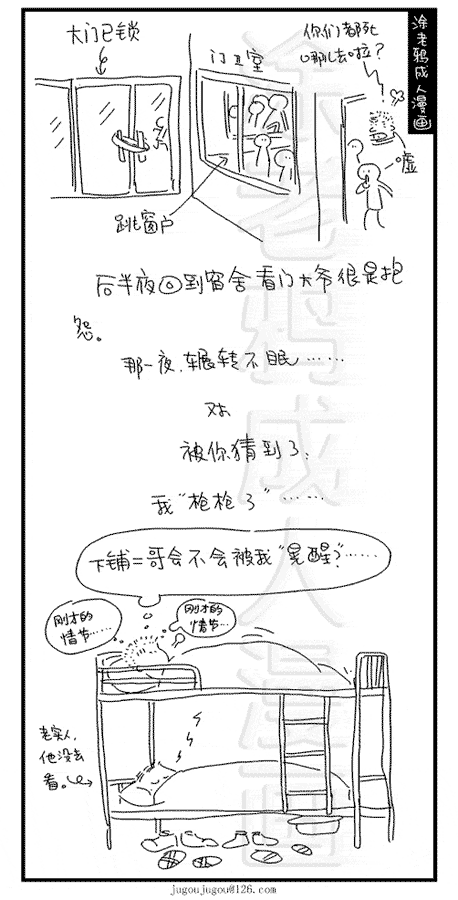 涂老鸦成人漫画
大门已锁
门卫室
你们都死
哪儿去啦？
嘘
跳窗户
后半夜回到宿舍看门大爷很是抱
怨。
那一夜，辗转不眠……
对
被你猜到了，
我“枪枪了”……
下铺二哥会不会被我“晃醒？”……
刚才的
情节……
刚才的
情节…
老实人，
他没去
看。
涂老鸦成人漫画
jugoujugou@126.com